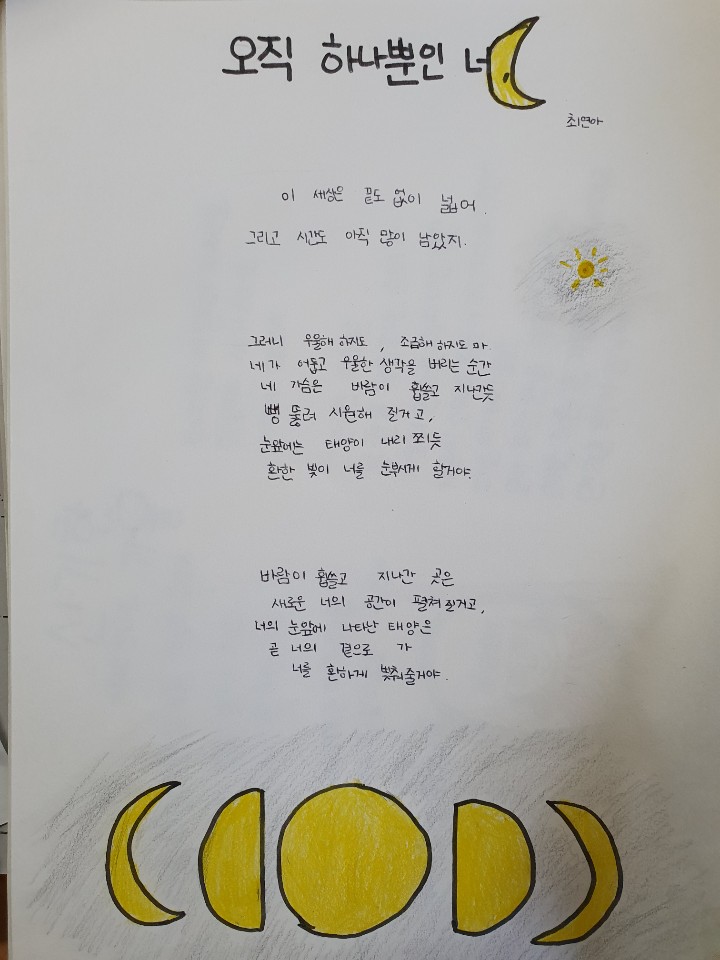 오직 하나뿐인 너
최연아
이 세상은 끝도 없이 넓어.
그리고 시간도 아직 많이 남았지.
그러니 우울해 하지도, 조급해 하지도 마.
네가 어둡고 우울한 생각을 버리는 순간
네 가슴은 바람이 휩쓸고 지나간듯
뻥 뚫려 시원해 질거고,
눈앞에는 태양이 내리 쬐듯
환한 빛이 너를 눈부시게 할거야.
바람이 휩쓸고 지나간 곳은
새로운 너의 공간이 펼쳐질거고,
너의 눈앞에 나타난 태양은
곧 너의 곁으로 가
너를 환하게 빛춰줄거야.